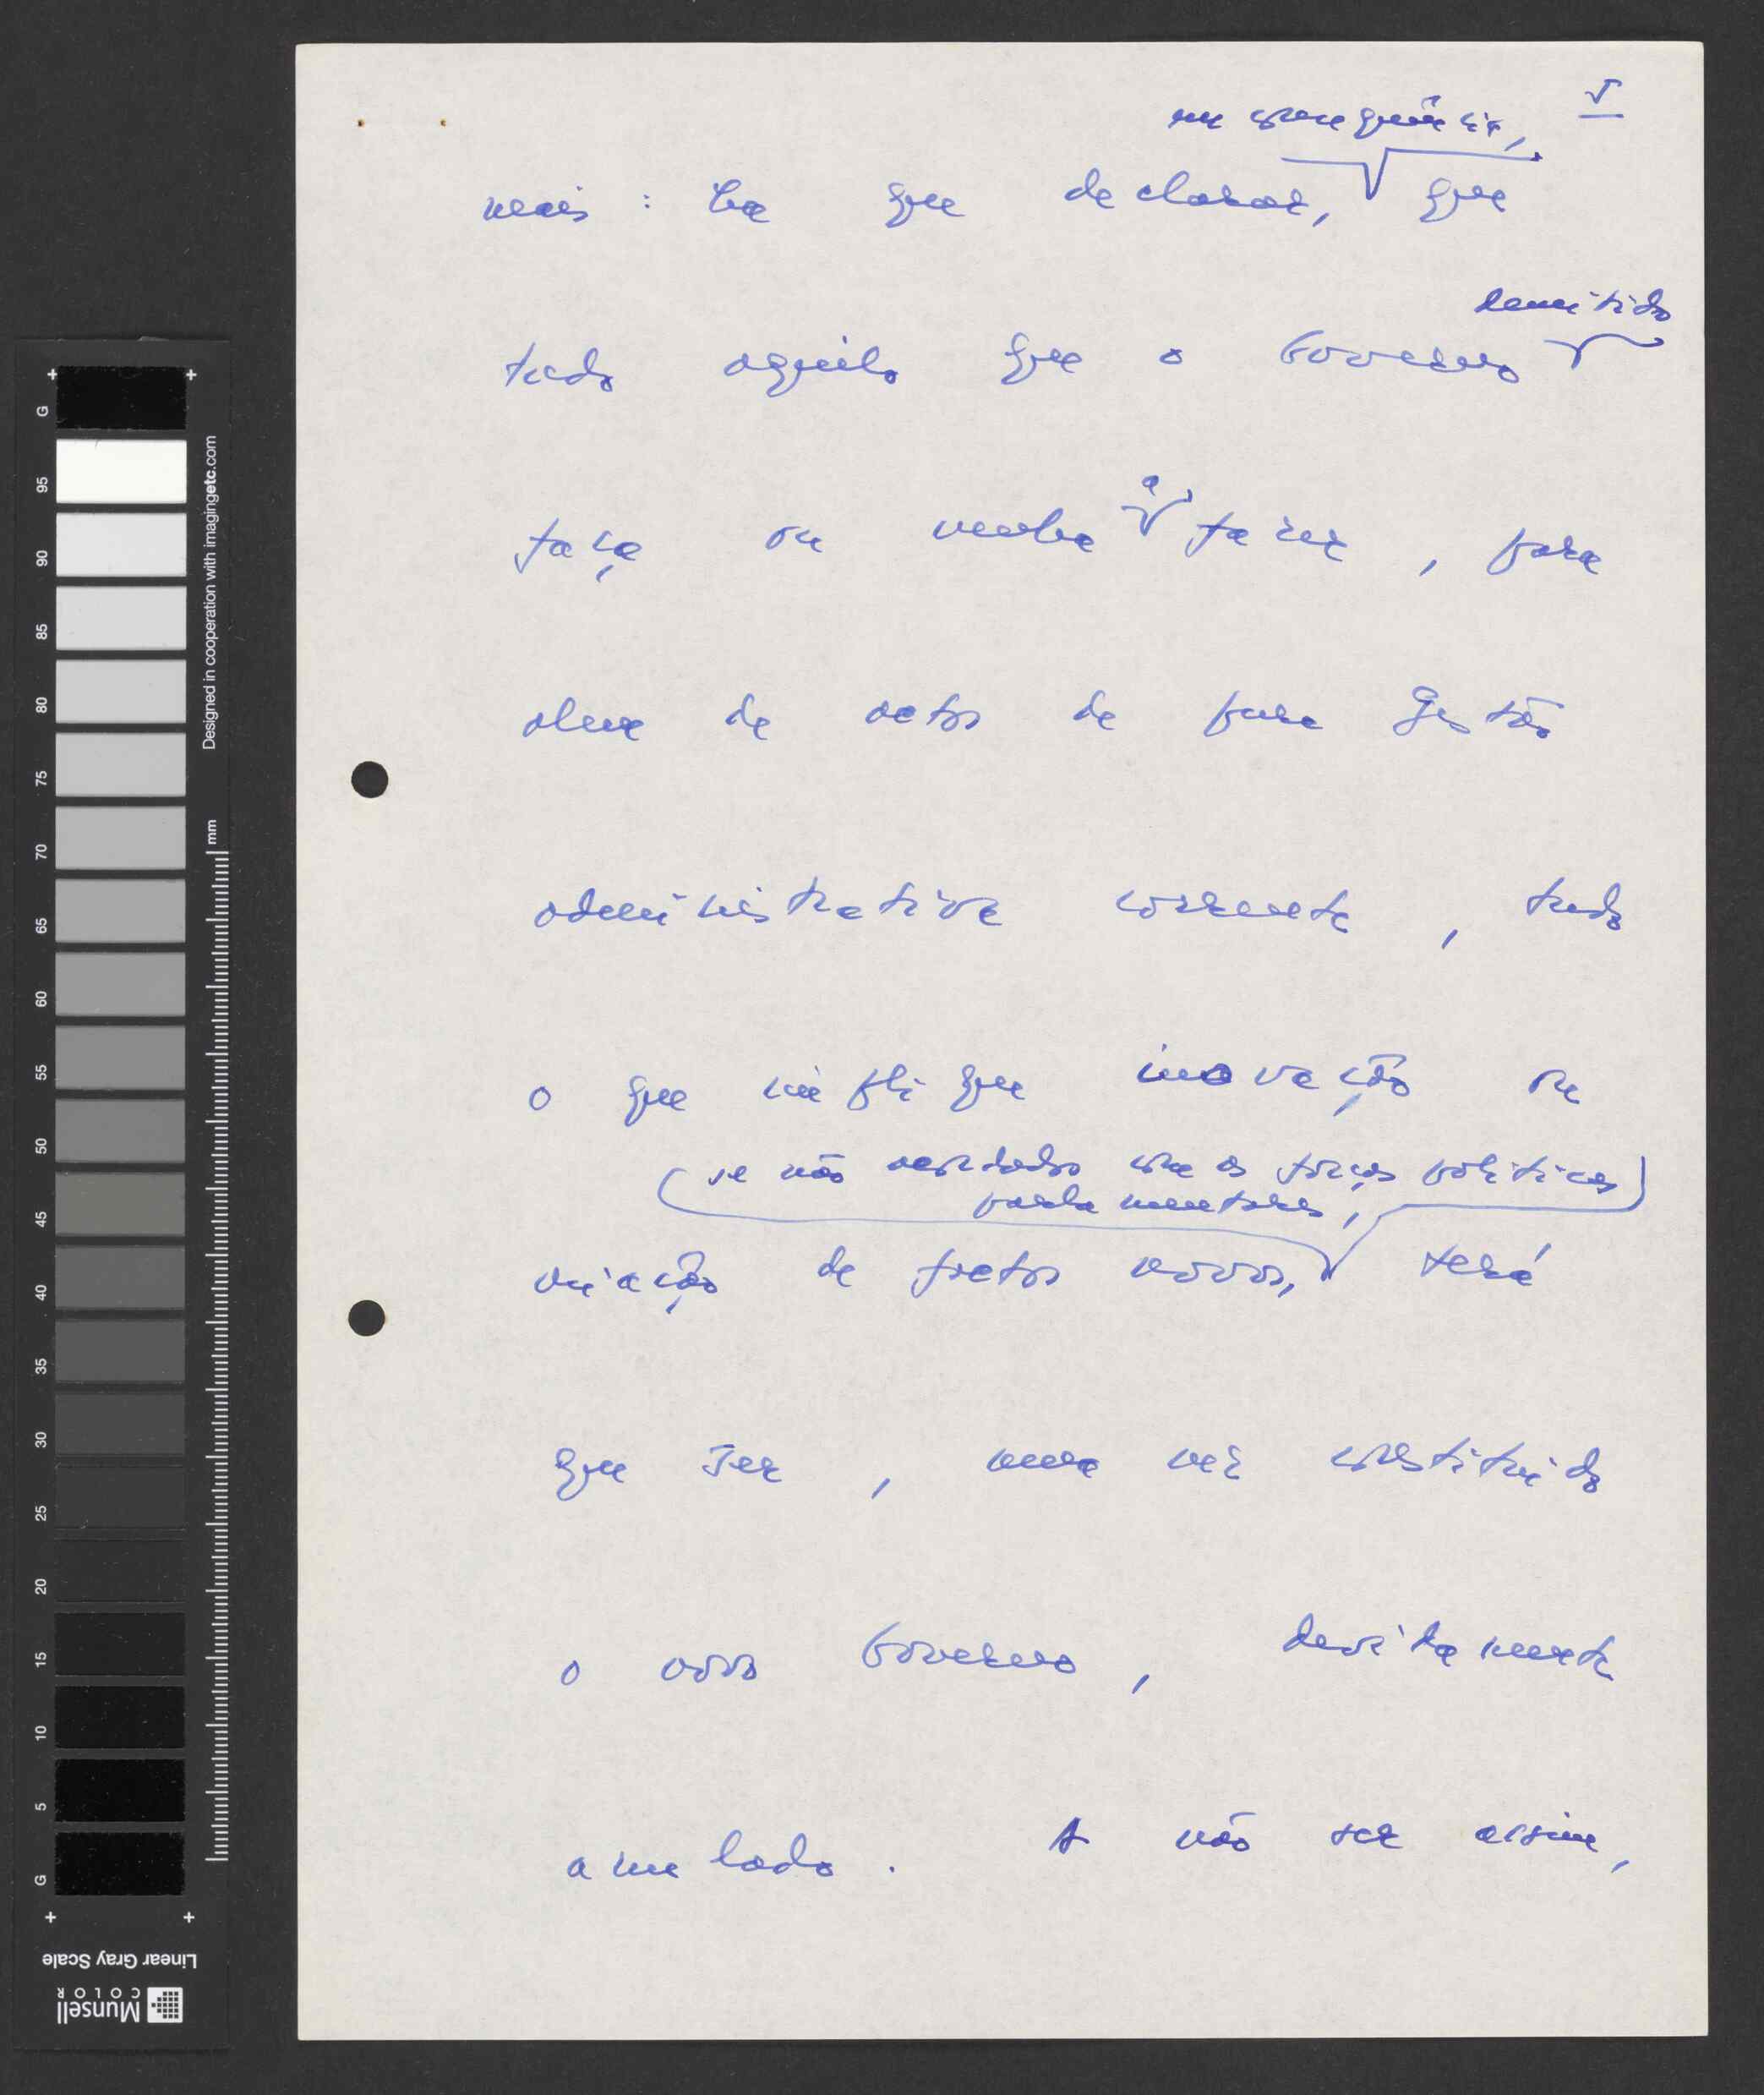 5
em consequência,
mais : há que declarar, que
demitido
tudo aquilo que o Governo
a
faça ou venha fazer, para
além de actos de pura gestão
administrativa corrente, tudo
o que implique inovação ou
(se não acordado com as forças políticas
parlamentares,)
criação de factos novos, terá
que ser, uma vez constituído
o novo Governo, devidamente
anulado. A não ser assim,
G
95
90
85
80
75
70
65
60
55
50
45
40
35
30
25
20
15
10
5
G
Designed in cooperation with imagingetc.com
mm
Linear Gray Scale
Munsell
COLOR